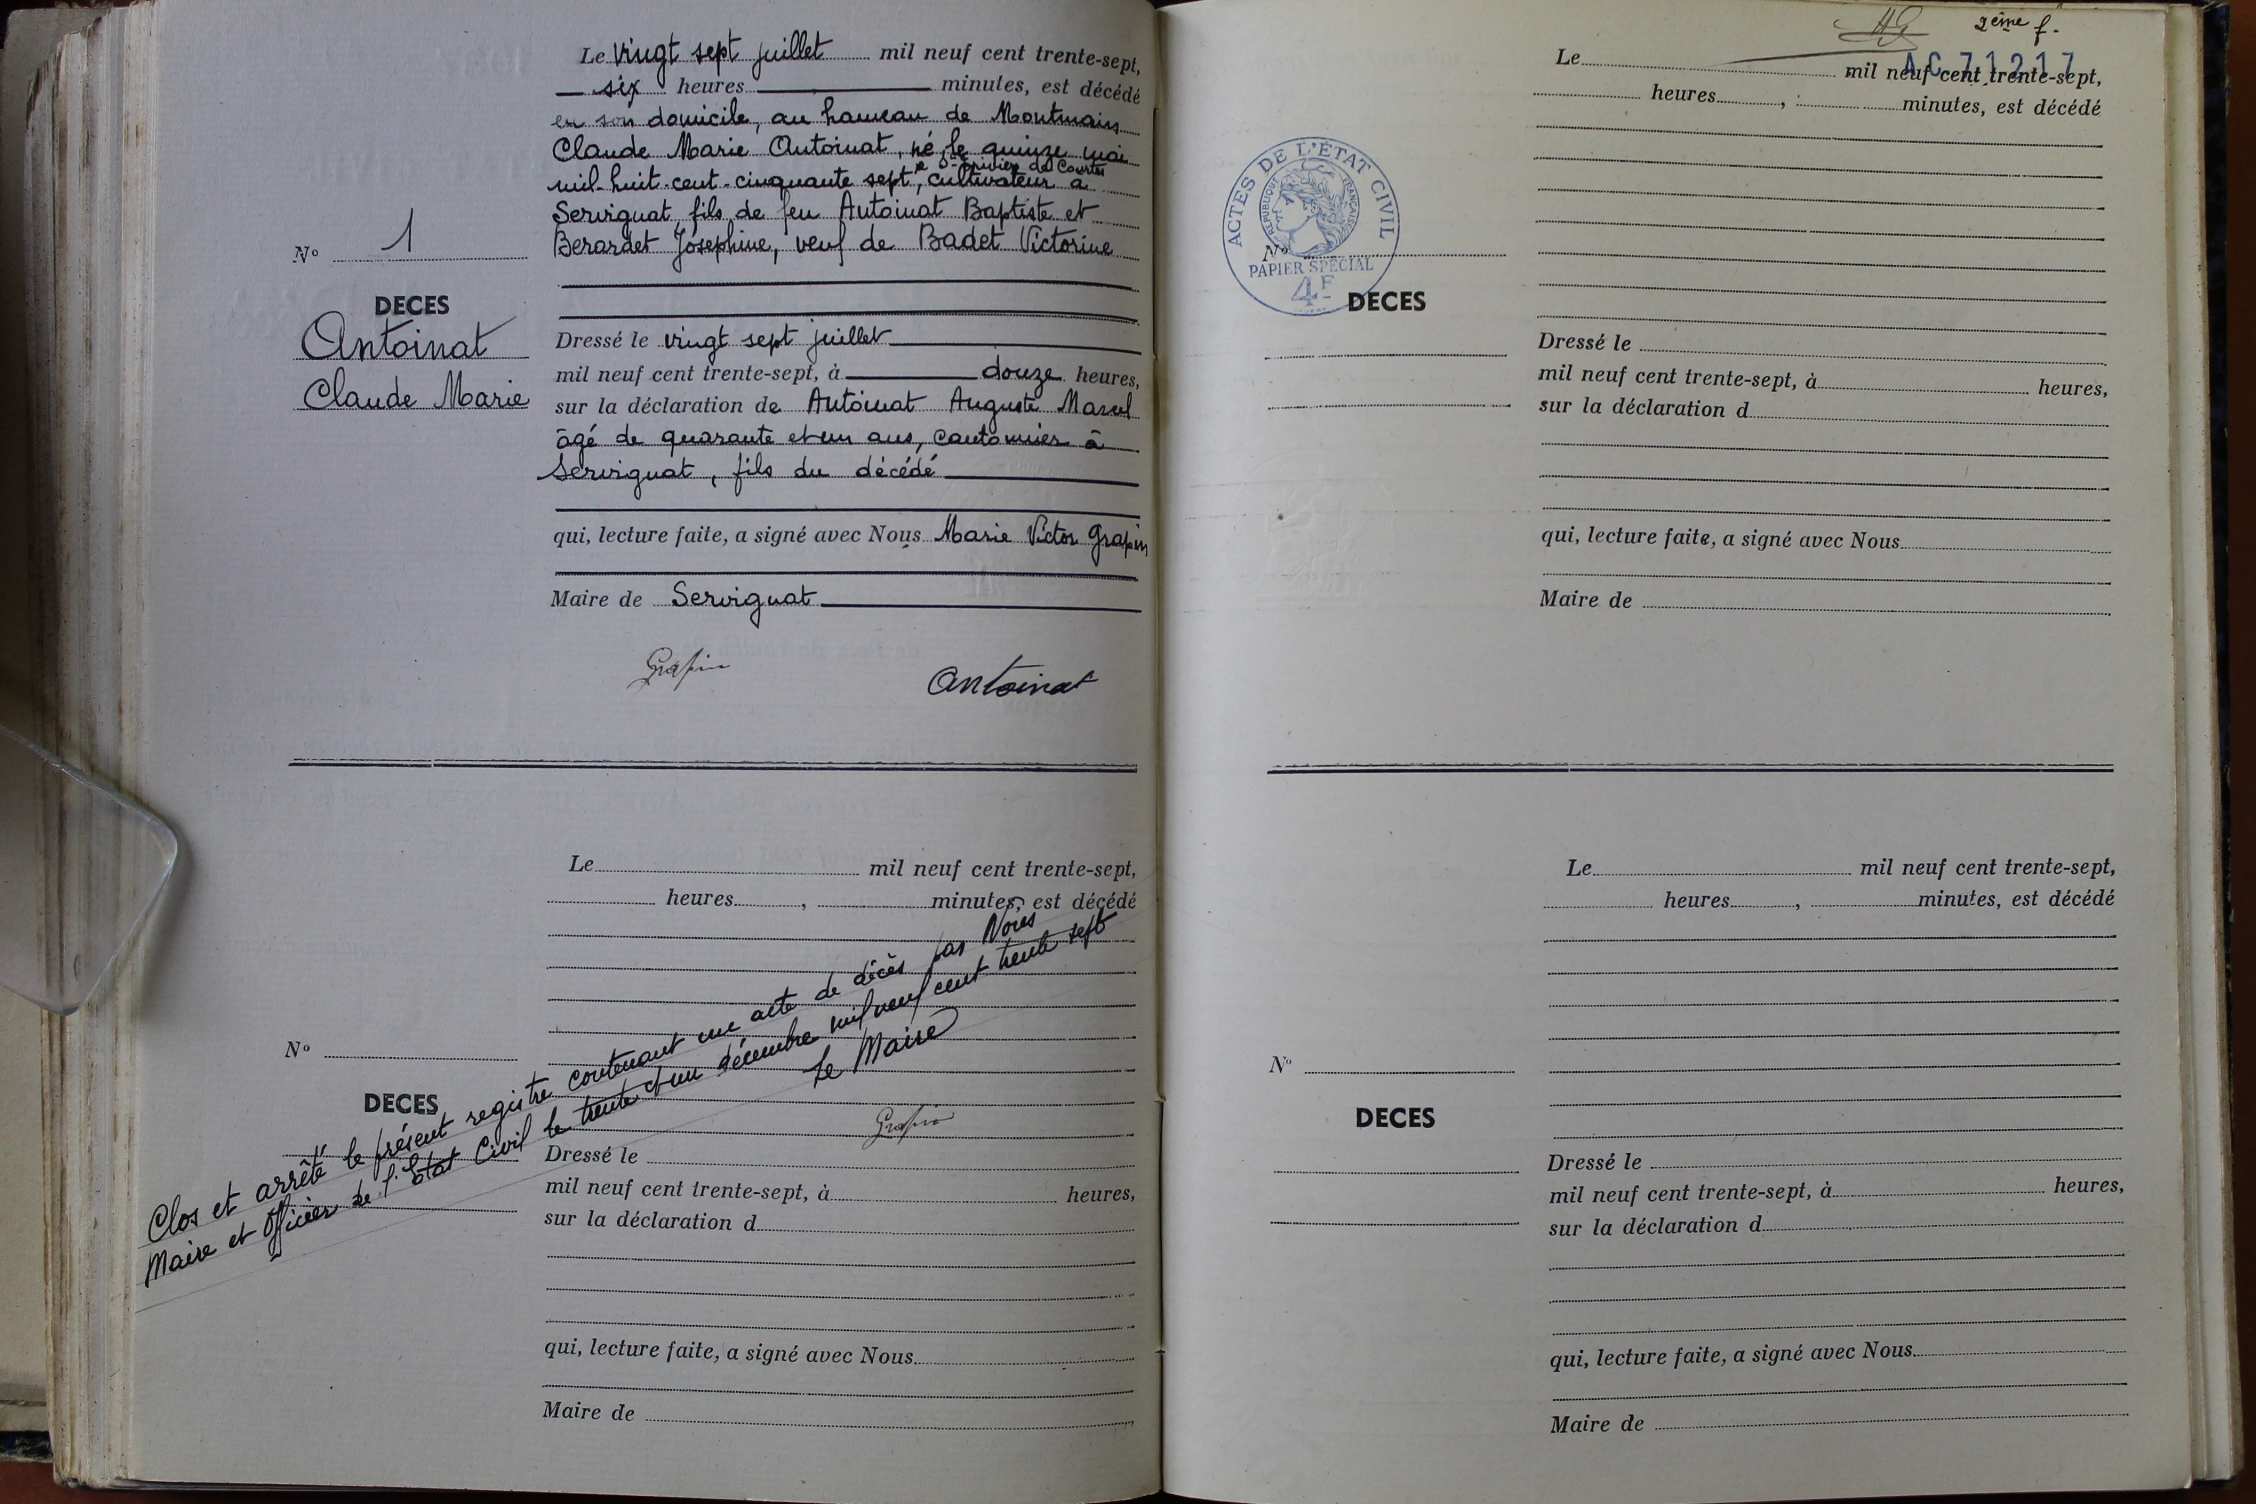 Le vingt sept juillet mil neuf cent trente-sept,
six heures minutes, est décédé
en son domicile, au hameau de Montmain
Claude Marie Antoinat, né le quinze mai
à St Trivier de Courtes
mil-huit-cent-cinquante sept, cultivateur à
Servignat, fils de feu Antoinat Baptiste et
Berardet Joséphine, veuf de Badet Victorine
No 1
DECES
Antoinat
Claude Marie
Dressé le vingt sept juillet
mil neuf cent trente-sept, à douze heures,
sur la déclaration de Antoinat Auguste Marcel
âgé de quarante et un ans, cantonnier à
Servignat, fils du décédé
qui, lecture faite, a signé avec Nous Marie Victor Grapin
Maire de Servignat
Grapin
Antoinat
Le mil neuf cent trente-sept,
heures , minutes, est décédé
No
DECES
Clos et arrêté le présent registre contenant un acte de décès par Nous
Maire et Officier de l'Etat Civil le trente et un décembre mil neuf cent trente sept
Le Maire
Grapin
Dressé le
mil neuf cent trente-sept, à heures,
sur la déclaration d
qui, lecture faite, a signé avec Nous
Maire de
2ème f.
AC 71217
Le mil neuf cent trente-sept,
heures , minutes, est décédé
ACTES DE L'ÉTAT CIVIL
REPUBLIQUE FRANÇAISE
PAPIER SPECIAL
4F
No
DECES
Dressé le
mil neuf cent trente-sept, à heures,
sur la déclaration d
qui, lecture faite, a signé avec Nous
Maire de
Le mil neuf cent trente-sept,
heures , minutes, est décédé
No
DECES
Dressé le
mil neuf cent trente-sept, à heures,
sur la déclaration d
qui, lecture faite, a signé avec Nous
Maire de